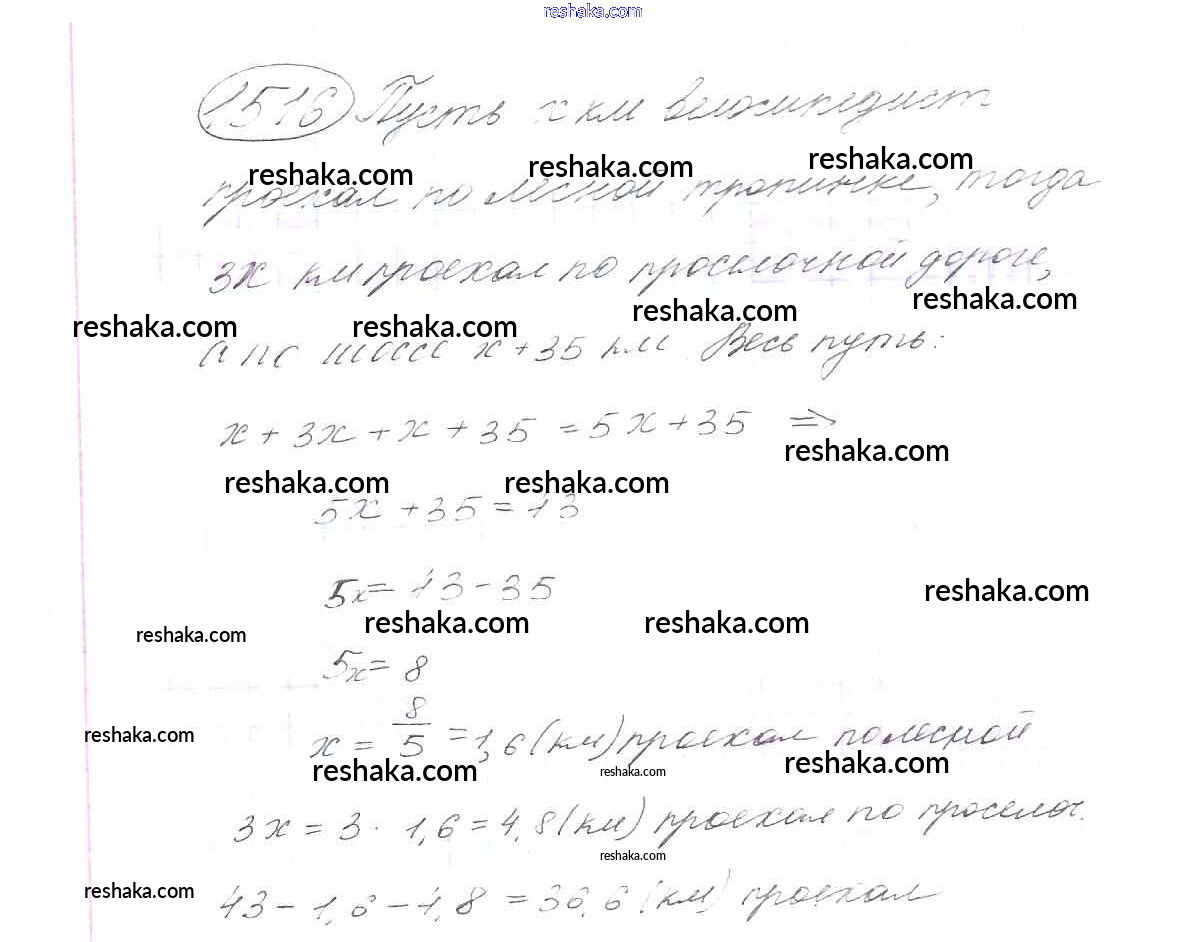 reshaka.com
1516 Пусть x км велосипедист
reshaka.com reshaka.com reshaka.com
проехал по лесной тропинке, тогда
3x км проехал по проселочной дороге,
reshaka.com reshaka.com reshaka.com reshaka.com
а по шоссе x + 35 км. Весь путь:
x + 3x + x + 35 = 5x + 35 ⇒
reshaka.com
reshaka.com reshaka.com
5x + 35 = 13
5x = 13 - 35
reshaka.com
reshaka.com reshaka.com reshaka.com
5x = 8
x = 8/5 = 1,6 (км) проехал по лесной
reshaka.com
reshaka.com reshaka.com reshaka.com
3x = 3 · 1,6 = 4,8 (км) проехал по проселоч.
reshaka.com
reshaka.com
43 - 1,6 - 4,8 = 36,6 (км) проехал